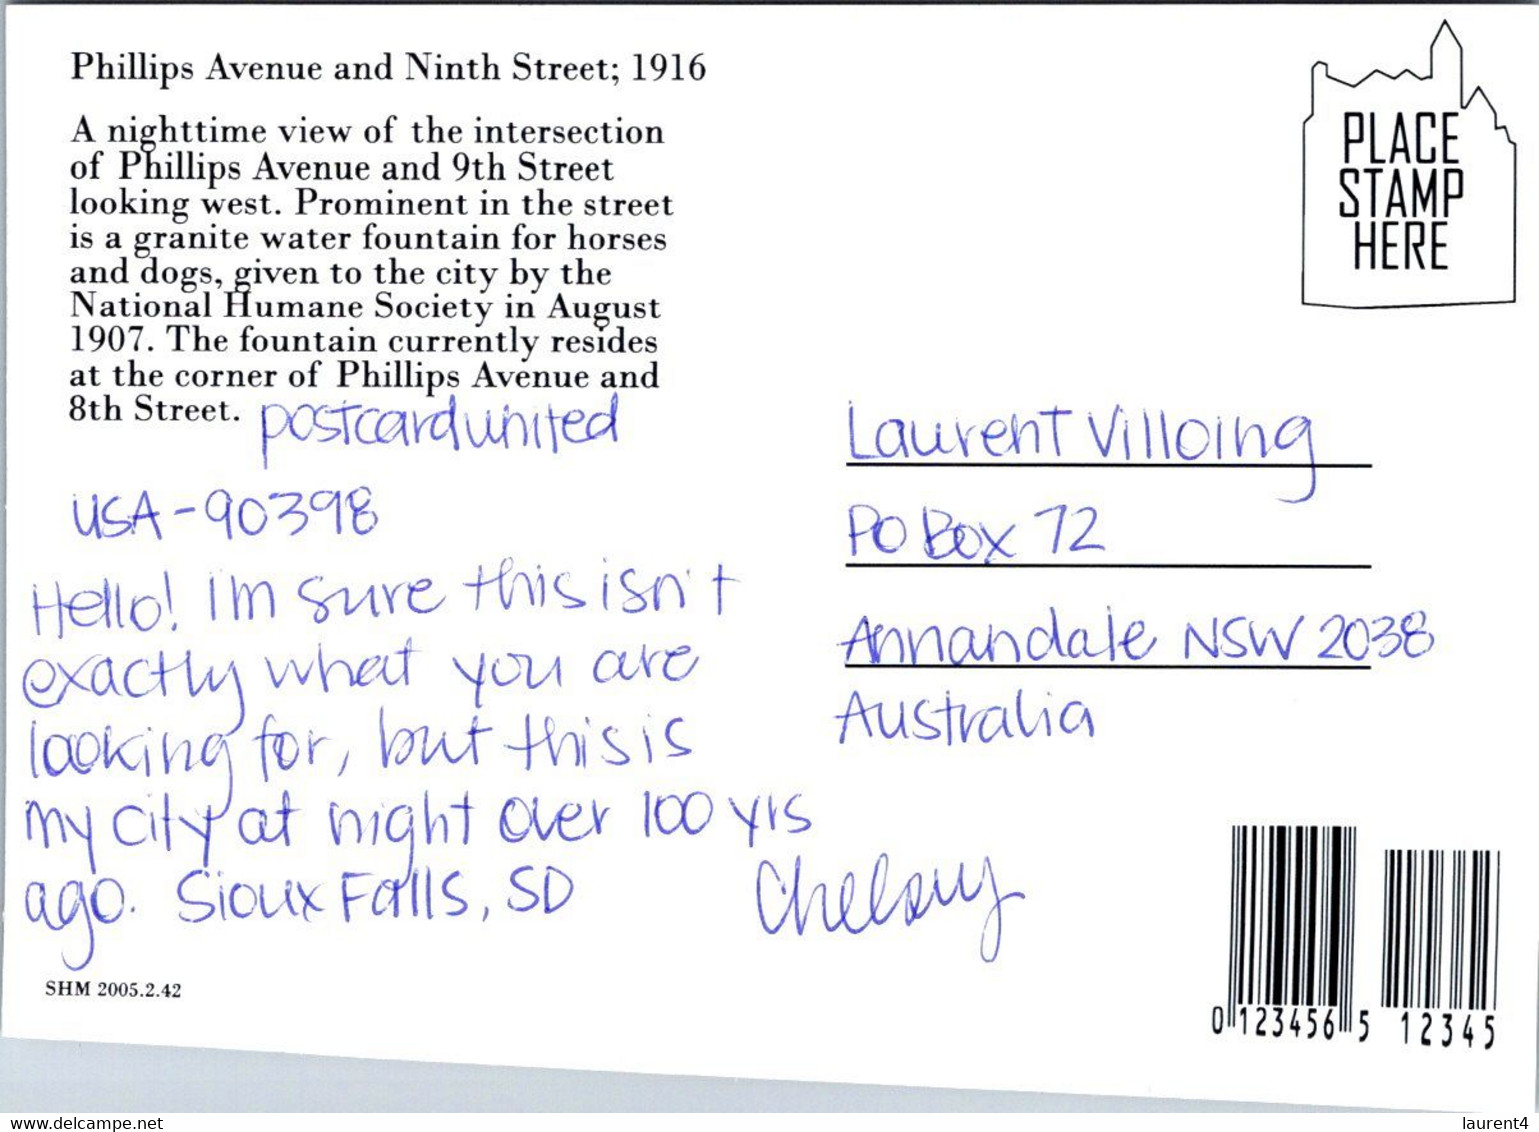 Phillips Avenue and Ninth Street; 1916
A nighttime view of the intersection
of Phillips Avenue and 9th Street
looking west. Prominent in the street
is a granite water fountain for horses
and dogs, given to the city by the
National Humane Society in August
1907. The fountain currently resides
at the corner of Phillips Avenue and
8th Street.
postcardunited
USA-90398
Hello! I'm sure this isn't
exactly what you are
looking for, but this is
my city at night over 100 yrs
ago. Sioux Falls, SD
Chelsey
SHM 2005.2.42
PLACE
STAMP
HERE
Laurent Villoing
PO Box 72
Annandale NSW 2038
Australia
0 123456 5 12345
www.delcampe.net
laurent4